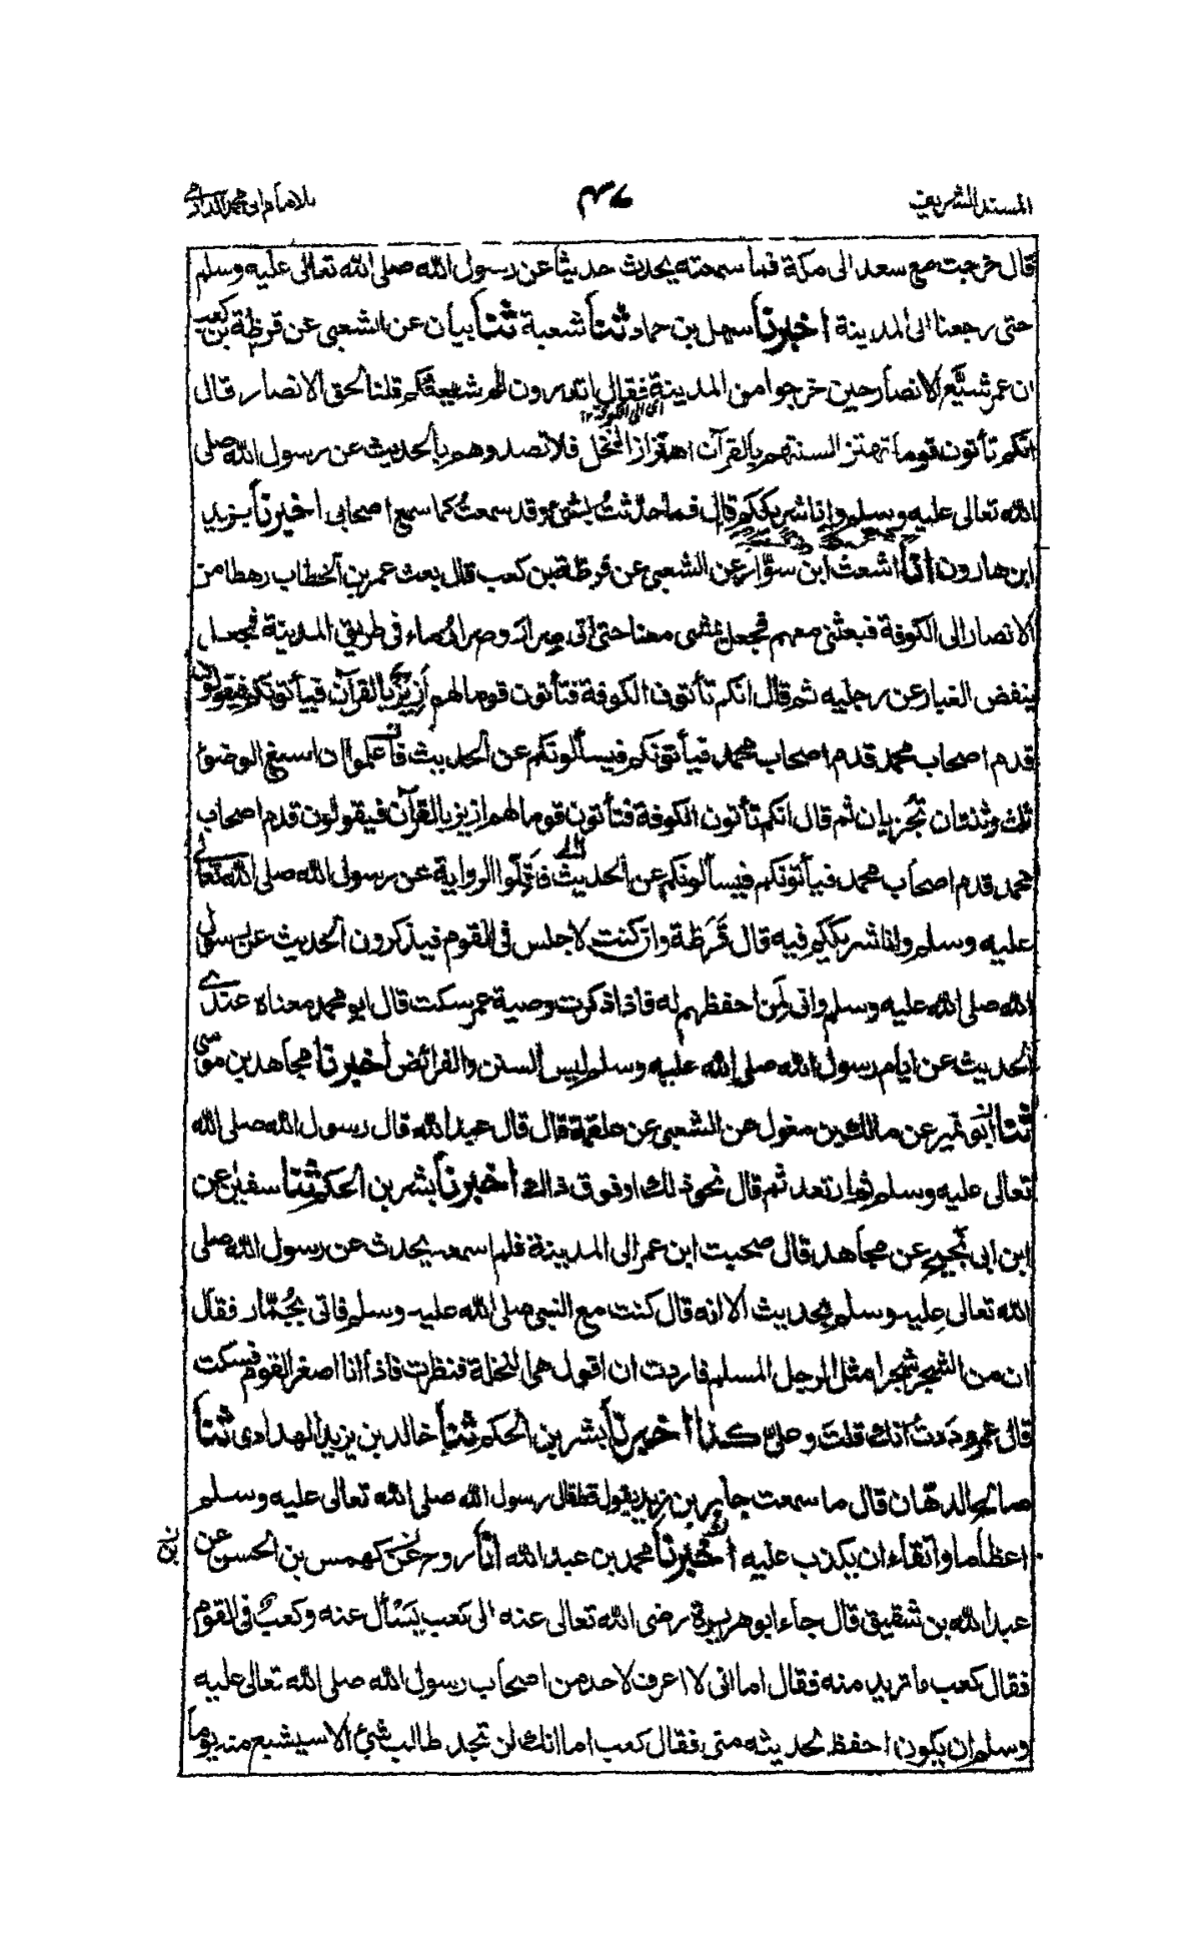 المسند الشريف
للامام ابی محمد الدارمی
قال خرجت مع سعد الى مكة فما سمعته يحدث حديثا عن رسول الله صلى الله تعالى عليه وسلم
حتى رجعنا الى المدينة اخبرنا سهل بن حماد ثنا شعبة ثنا بيان عن الشعبى عن قرظة بن كعب
ان عمر شيَّع الانصار حين خرجوا من المدينة فقال اتدرون لم شيعتكم قلنا لحق الانصار قال
ای الى الكوفة ١٢
انكم تأتون قوما تهتز السنتهم بالقرآن اهتزاز النخل فلا تصدوهم بالحديث عن رسول الله صلى
الله تعالى عليه وسلم وانا شريككم قال فما حدّثتُ بشئ وقد سمعتُ كما سمع اصحابى اخبرنا يزيد
ابن هارون انا اشعث ابن سوّار عن الشعبى عن قرظة بن كعب قال بعث عمر بن الخطاب رهطا من
الانصار الى الكوفة فبعثنى معهم فجعل يمشى معنا حتى اتى صرار وصرار ماء فى طريق المدينة فجعل
ينفض الغبار عن رجليه ثم قال انكم تأتون الكوفة فتأتون قوما لهم أزيزٌ بالقرآن فيأتونكم فيقولون
قدم اصحاب محمد قدم اصحاب محمد فيأتونكم فيسألونكم عن الحديث فاعلموا ان اسبغ الوضوئ
ثلث وثنتان تجزيان ثم قال انكم تأتون الكوفة فتأتون قوما لهم ازيز بالقرآن فيقولون قدم اصحاب
محمد قدم اصحاب محمد فيأتونكم فيسألونكم عن الحديث فاَقِلّوا الرواية عن رسول الله صلى الله تعالى
عليه وسلم وانا شريككم فيه قال قَرَظة وان كنت لاجلس فى القوم فيذكرون الحديث عن رسول
الله صلى الله عليه وسلم وانى لَمِن احفظهم له فاذا ذكرت وصية عمر سكت قال ابو محمد معناه عندى
الحديث عن ايام رسول الله صلى الله عليه وسلم ليس السنن والفرائض اخبرنا مجاهد بن موسى
ثنا ابن نمير عن مالك بن مغول عن الشعبى عن علقمة قال قال عبد الله قال رسول الله صلى الله
تعالى عليه وسلم ثم ارتعد ثم قال نحو ذلك او فوق ذاك اخبرنا بشر بن الحكم ثنا سفين عن
ابن ابى نجيح عن مجاهد قال صحبت ابن عمر الى المدينة فلم اسمعه يحدث عن رسول الله صلى
الله تعالى عليه وسلم بحديث الا انه قال كنت مع النبى صلى الله عليه وسلم فاتى بجُمّار فقال
ان من الشجر شجرا مثل الرجل المسلم فاردت ان اقول هى النخلة فنظرت فاذا انا اصغر القوم فسكت
قال عمر وددتُ انك قلت وعلىّ كذا اخبرنا بشر بن الحكم ثنا خالد بن يزيد الهدادى ثنا
صالح الدهّان قال ما سمعت جابر بن زيد يقول قط قال رسول الله صلى الله تعالى عليه وسلم
اعظاما واتقاء ان يكذب عليه اخبرنا محمد بن عبد الله انا روح عن كهمس بن الحسن عن
عبد الله بن شقيق قال جاء ابو هريرة رضى الله تعالى عنه الى كعب يَسْأل عنه وكعبٌ فى القوم
فقال كعب ما تريد منه فقال اما انى لا اعرف لاحد من اصحاب رسول الله صلى الله تعالى عليه
وسلم ان يكون احفظ لحديثه منى فقال كعب اما انك لن تجد طالب شئ الا سيشبع منه يوما